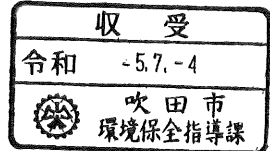 収受
令和 -5.7.-4
吹田市
環境保全指導課